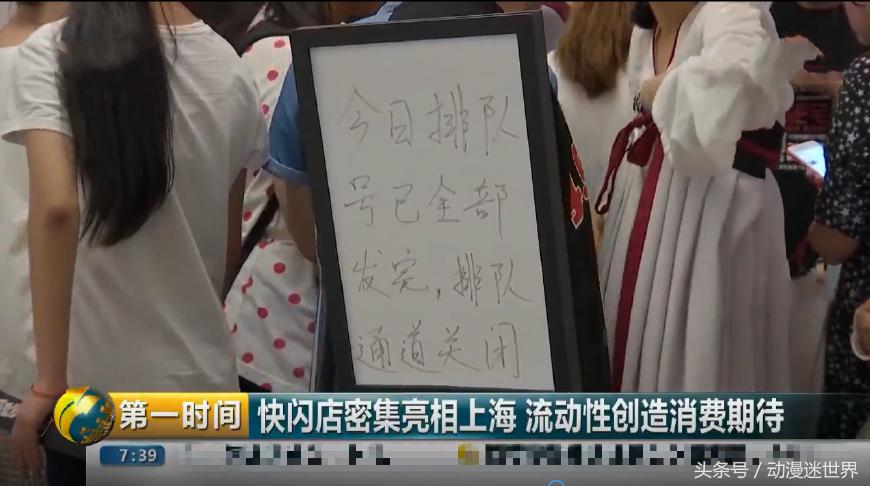 今日排队
号已全部
发完,排队
通道关闭
第一时间
快闪店密集亮相上海 流动性创造消费期待
7:39
头条号/动漫迷世界